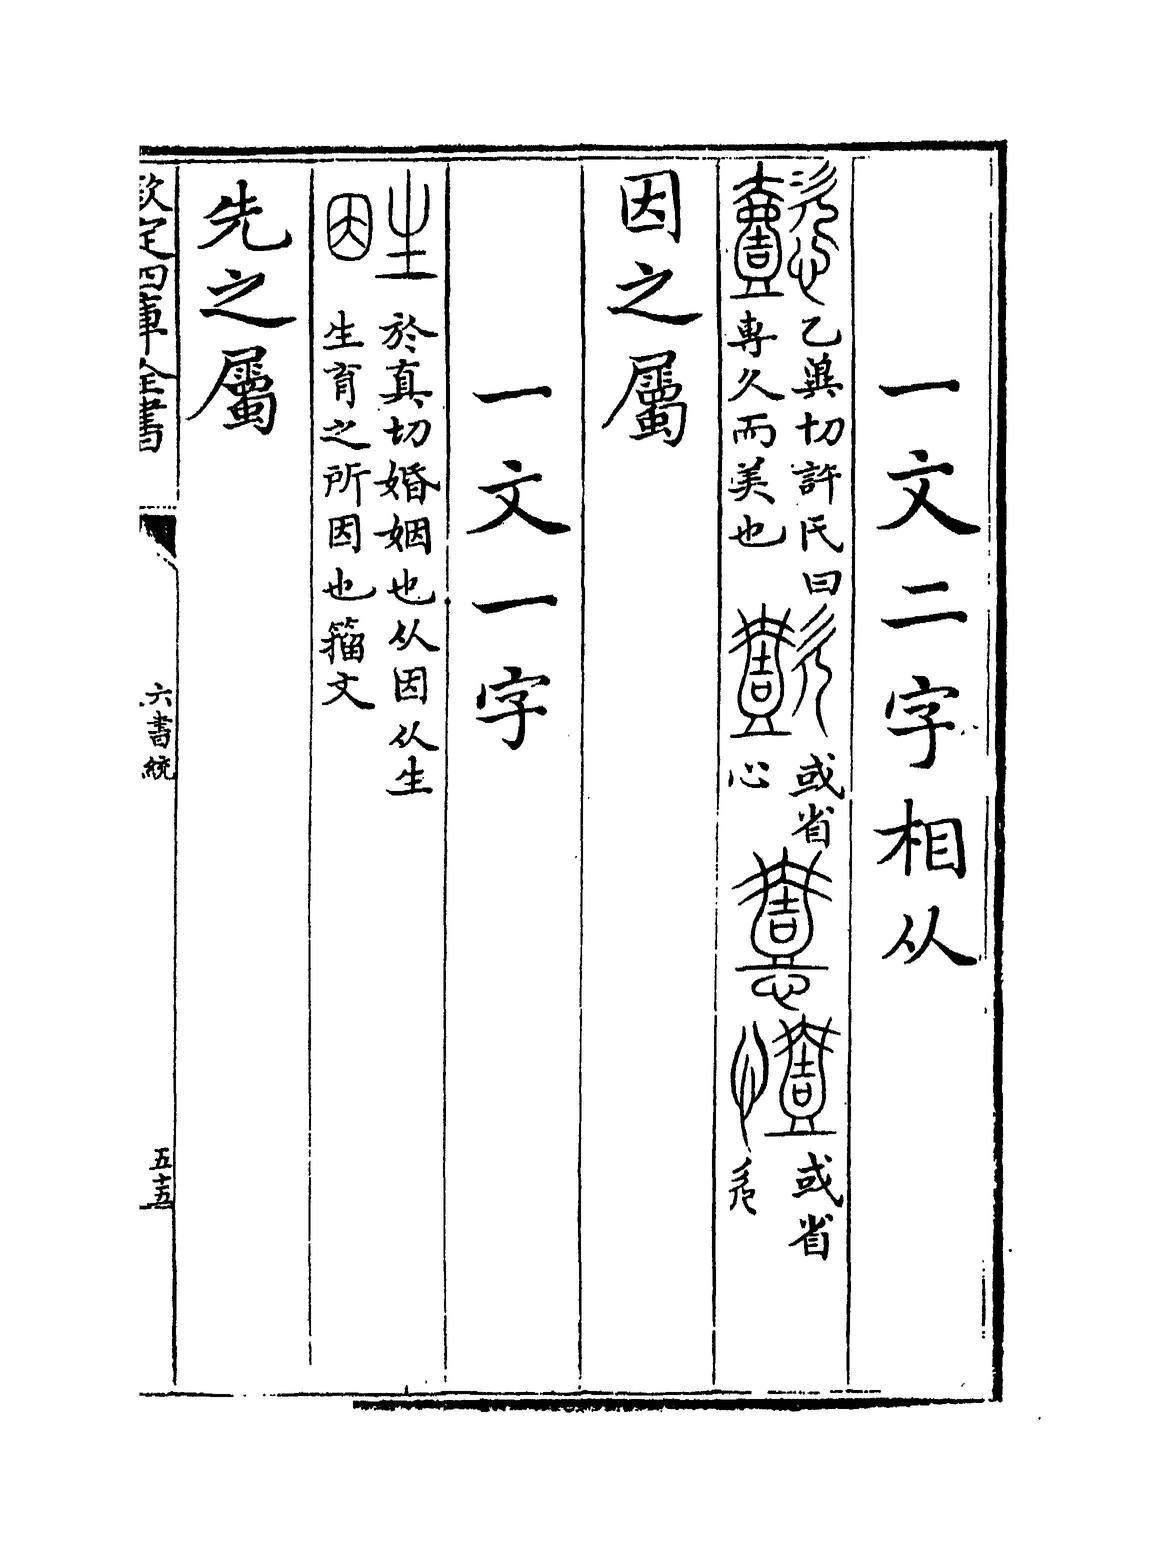 一文二字相从
乙兾切許氏曰專久而美也
或省心
或省
因之屬
一文一字
於真切婚姻也从因从生
生育之所因也籀文
先之屬
欽定四庫全書
六書統
五十五